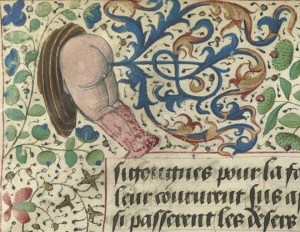 pour la fo
leur coururent sus a
si passerent les desers